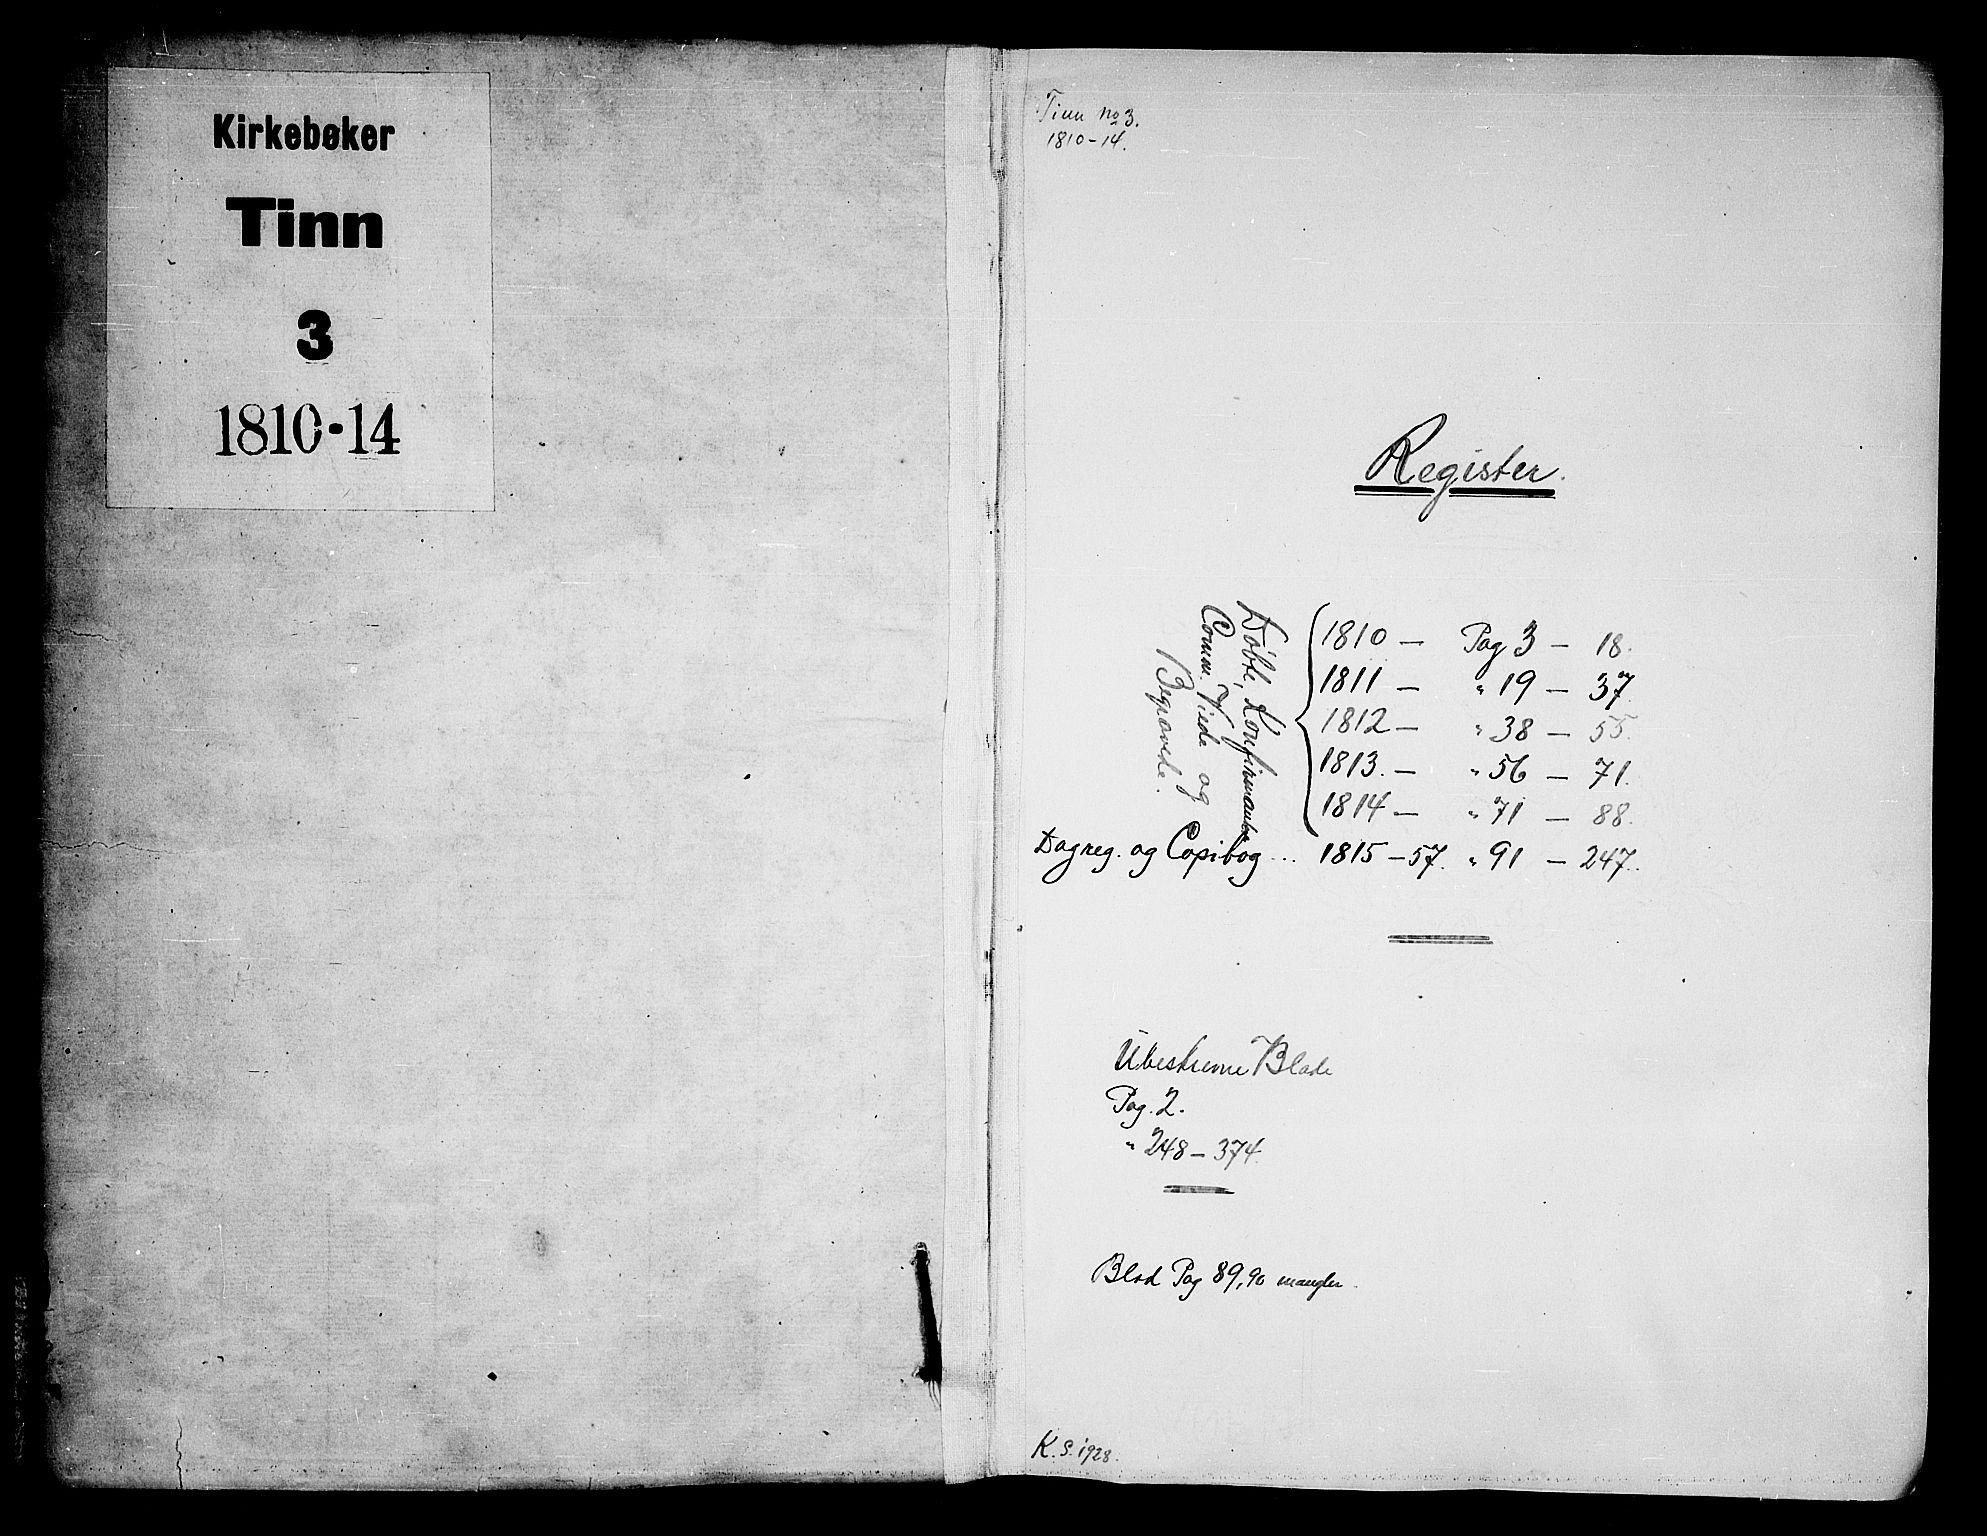 Kirkebøker
Tinn
3
1810-14
Tinn No 3.
1810-14.
Register.
Døbte, Konfirmanter
Comm. Viede og
Begravede.
1810 — Pag 3 — 18.
1811 — " 19 — 37
1812 — " 38 — 55.
1813. — " 56 — 71.
1814 — " 71 — 88.
Dagreg. og Copibog ... 1815-57. " 91 — 247.
Ubeskrevne Blade
Pag. 2.
" 248 — 374.
Blad Pag 89, 90 mangler.
K. S. 1928.